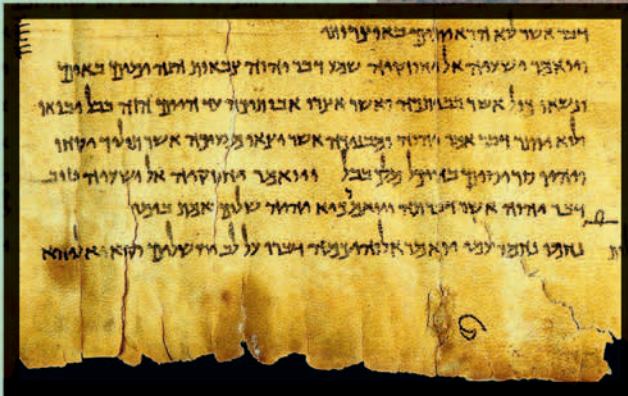 דבר אשר לא הראיתים באוצרותי
ויואמר ישעיה אל יחזקיה שמע דבר יהוה צבאות הנה ימים באים
ונשאו כול אשר בביתכה ואשר אצרו אבותיכה עד היום הזה בבל יבואו
ולוא יותר דבר אמר יהוה ומבניכה אשר יצאו ממעיכה אשר תוליד יקחו
והיו סריסים בהיכל מלך בבל ויואמר יחזקיה אל ישעיה טוב
דבר יהוה אשר דברתה ויאמר כיא יהיה שלום אמת בימי
נחמו נחמו עמי יואמר אלוהיכמה דברו על לב ירושלים וקראו אליהא